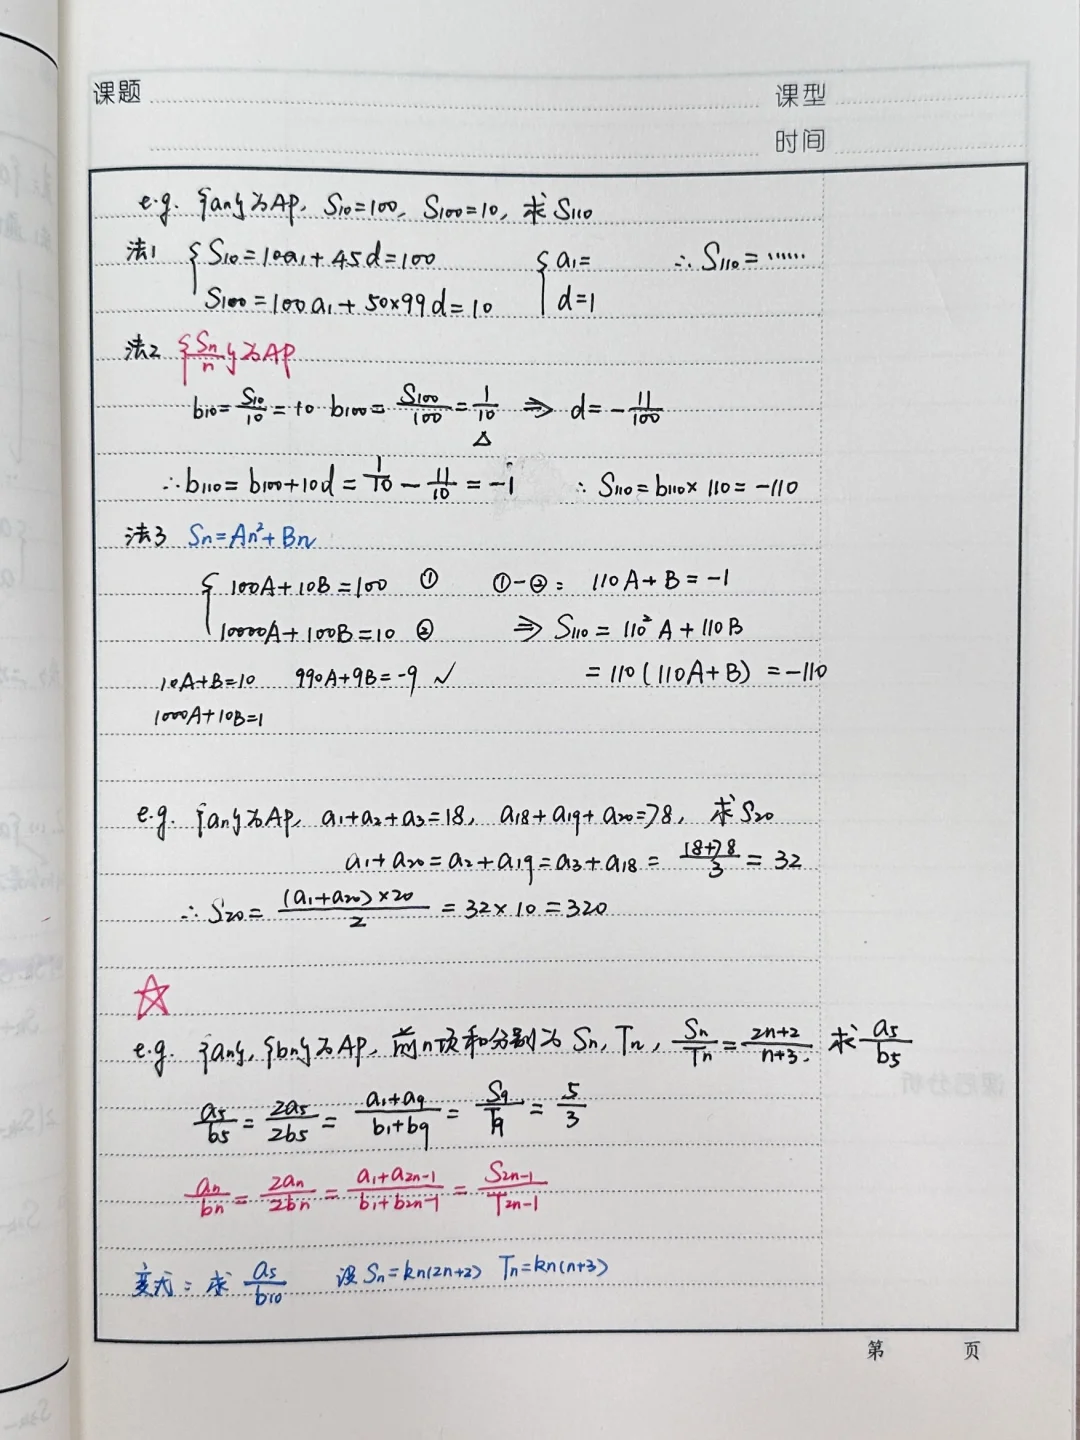 课题
课型
时间
e.g. {an}为AP, S10=100, S100=10, 求S110
法1 { S10=10a1+45d=100 { a1= ∴ S110=……
S100=100a1+50×99d=10 d=1
法2 {Sn/n}为AP
b10=S10/10=10 b100=S100/100=1/10 ⇒ d=-11/100
△
∴b110=b100+10d=1/10-11/10=-1 ∴ S110=b110×110=-110
法3 Sn=An²+Bn
{ 100A+10B=100 ① ①-②: 110A+B=-1
10000A+100B=10 ② ⇒ S110=110²A+110B
10A+B=10 990A+9B=-9 ✓ =110(110A+B)=-110
1000A+10B=1
e.g. {an}为AP, a1+a2+a3=18, a18+a19+a20=78, 求S20
a1+a20=a2+a19=a3+a18=(18+78)/3=32
∴ S20=(a1+a20)×20/2=32×10=320
☆
e.g. {an}, {bn}为AP, 前n项和分别为Sn, Tn, Sn/Tn=2n+2/n+3. 求a5/b5
a5/b5=2a5/2b5=a1+a9/b1+b9=S9/T9=5/3
an/bn=2an/2bn=a1+a2n-1/b1+b2n-1=S2n-1/T2n-1
变式: 求a5/b10 设Sn=kn(2n+2) Tn=kn(n+3)
第 页